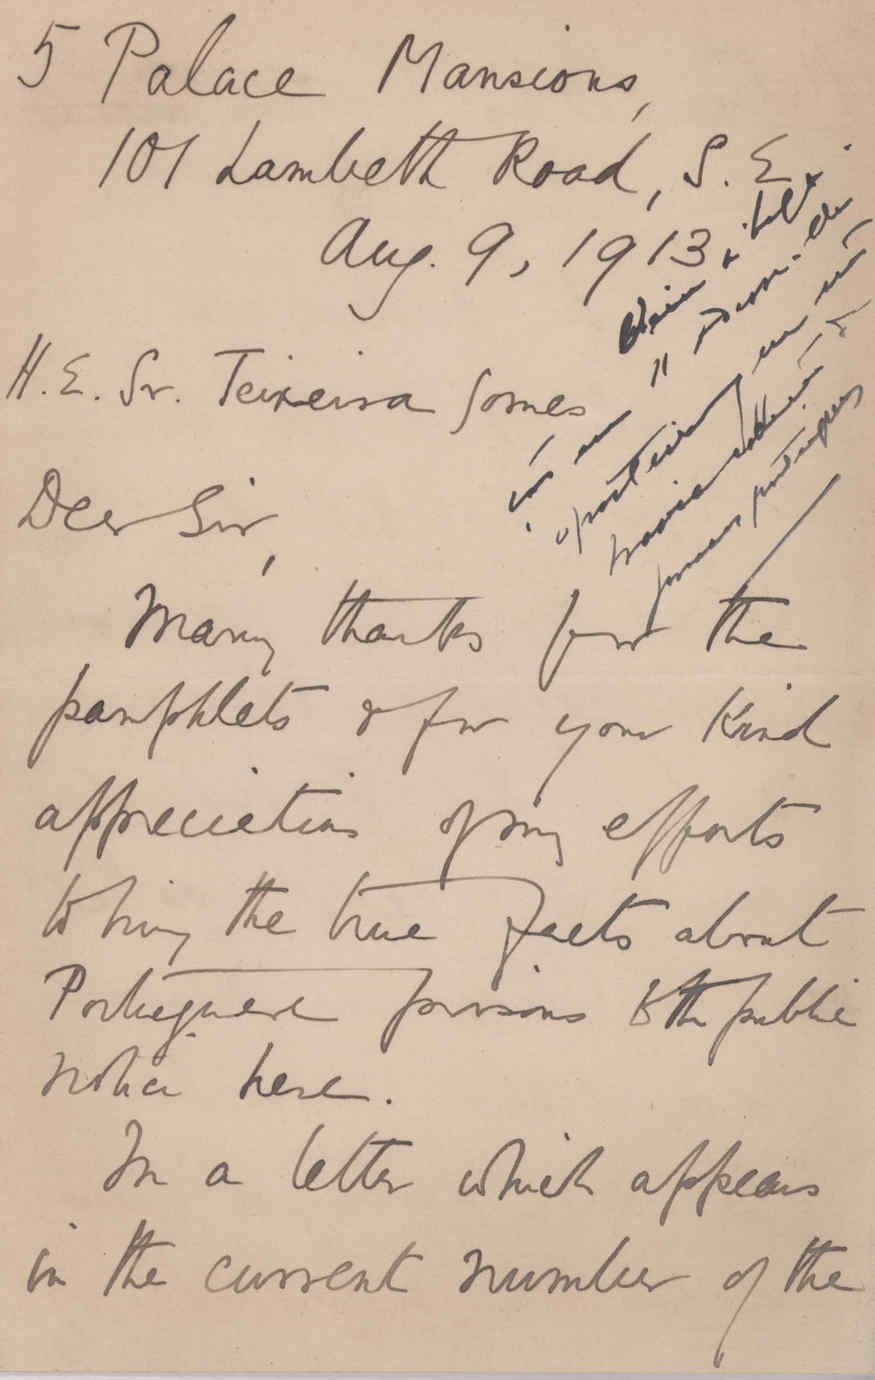 5 Palace Mansions,
101 Lambeth Road, S.E.
Aug. 9, 1913
H.E. Sr. Teixeira Gomes
Dear Sir,
Many thanks for the
pamphlets & for your kind
appreciation of my efforts
to bring the true facts about
Portuguese prisons to the public
notice here.
In a letter which appears
in the current number of the